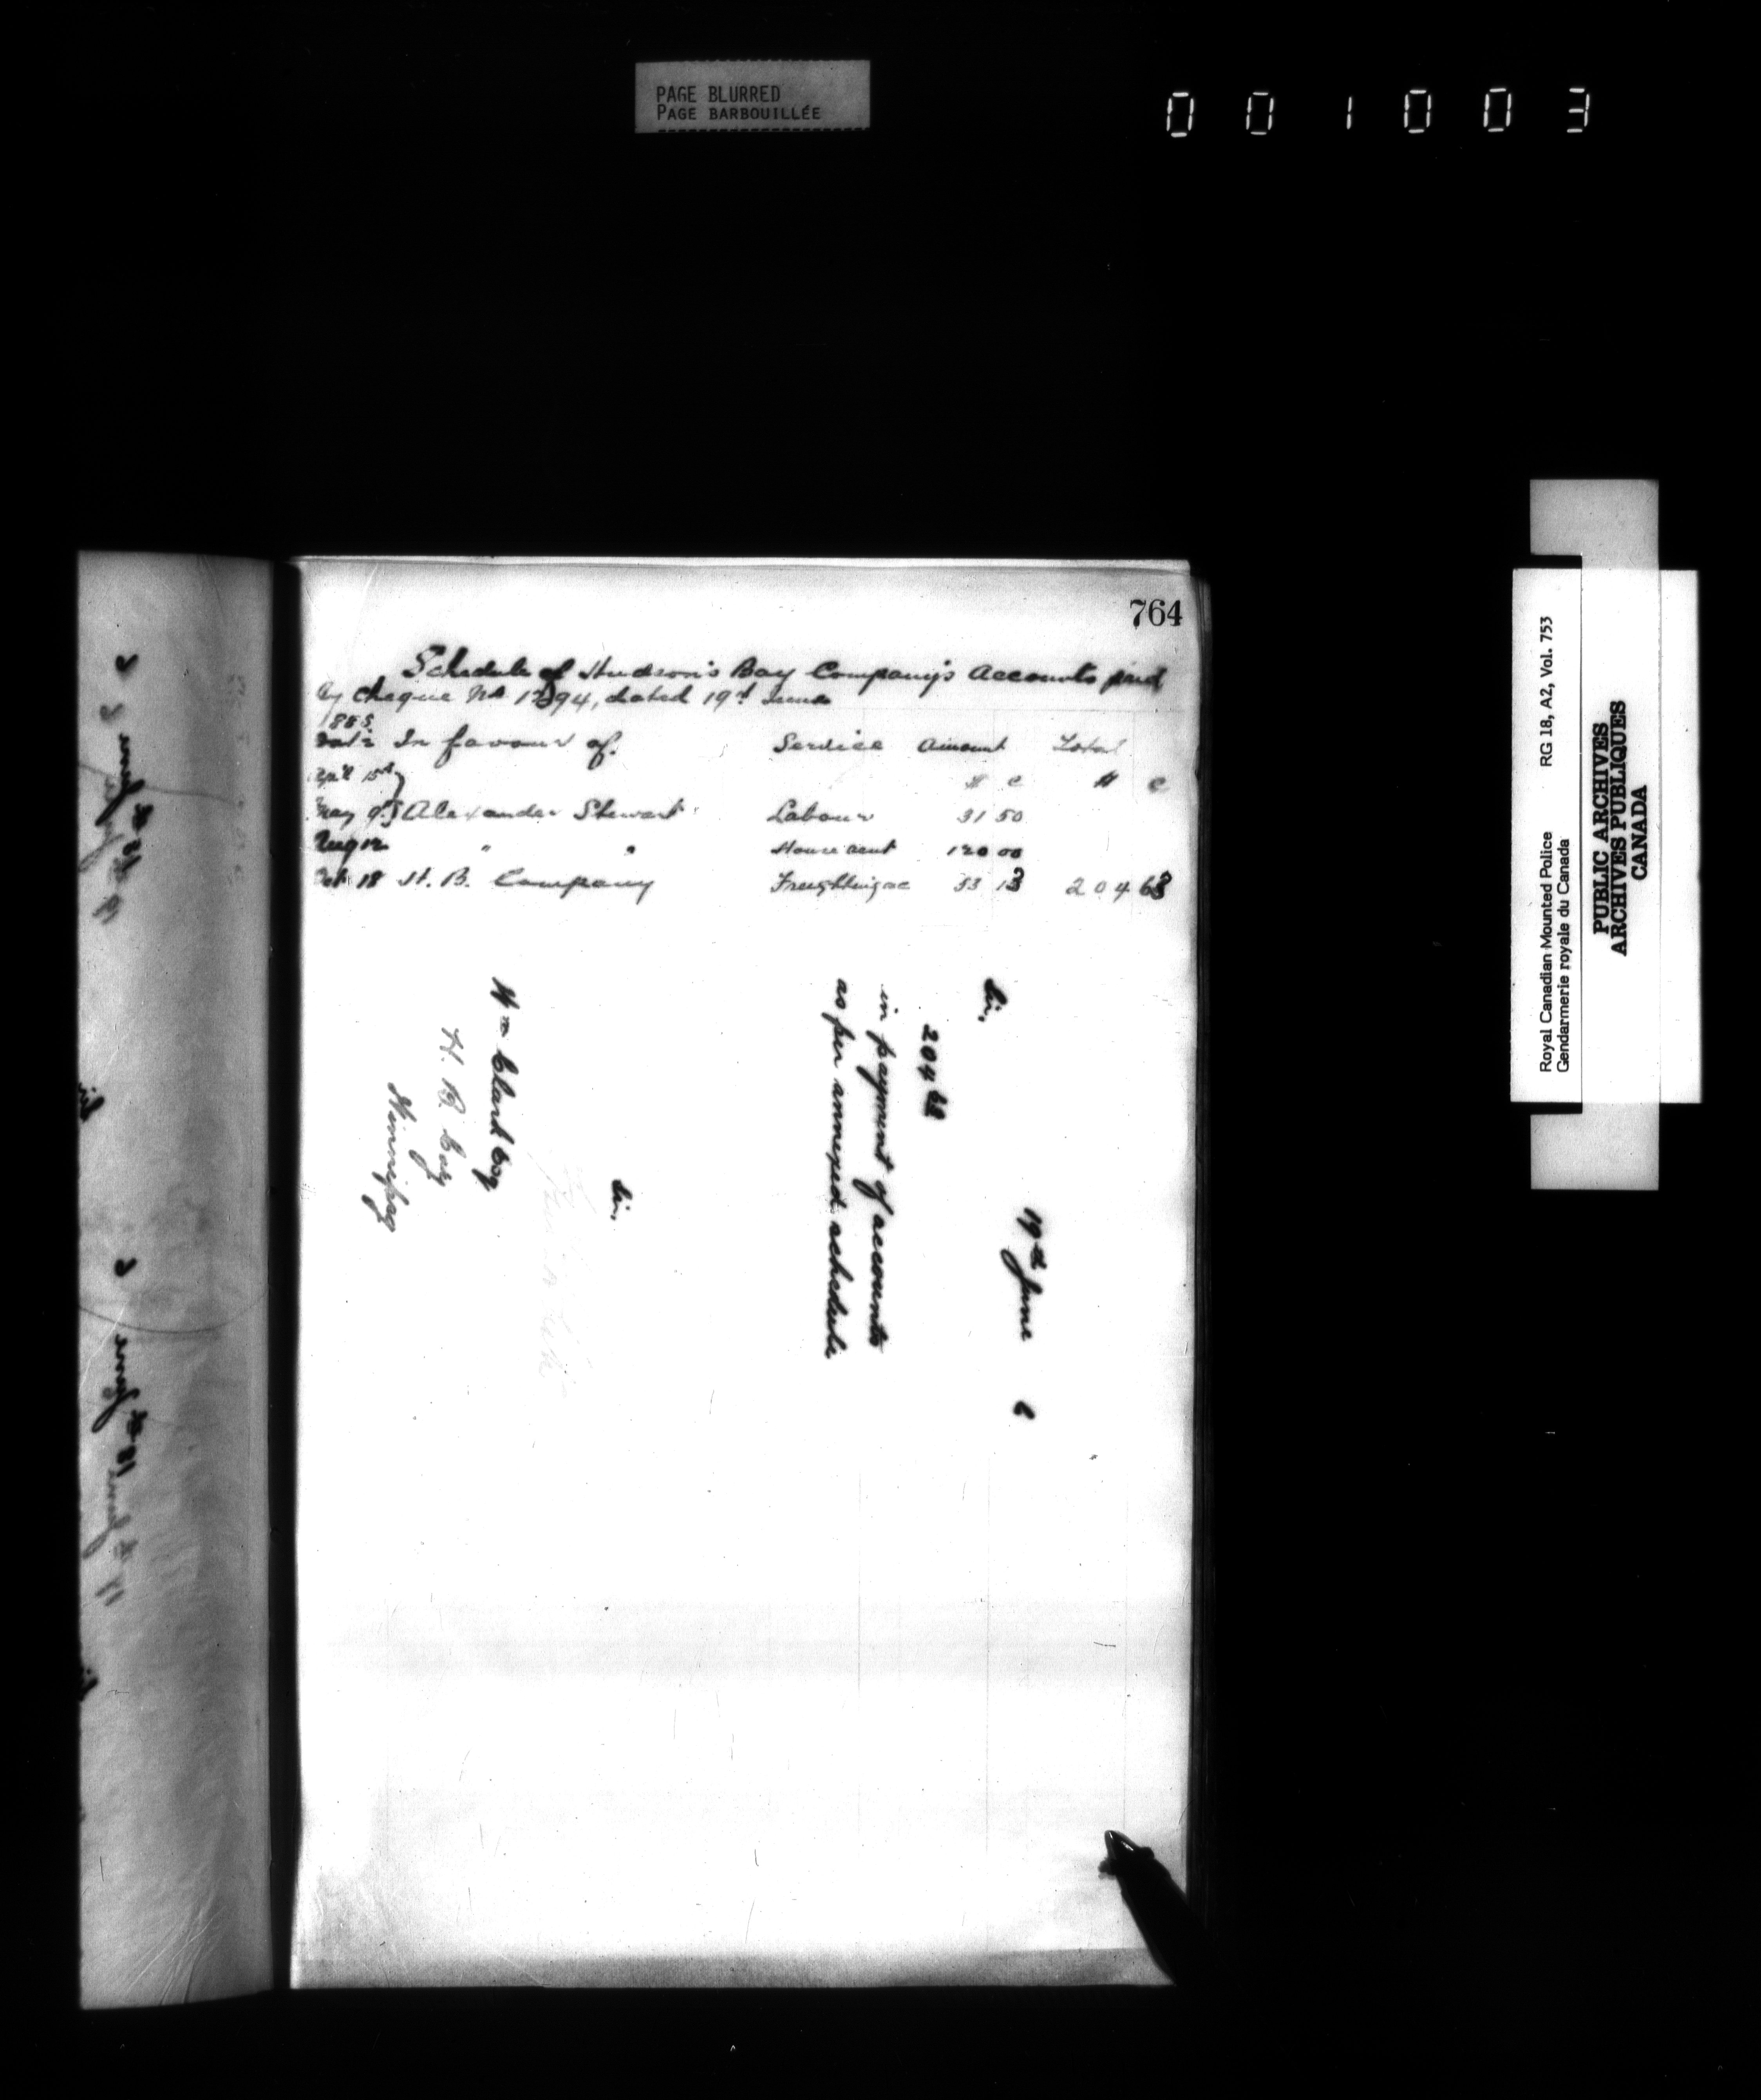 PAGE BLURRED
PAGE BARBOUILLÉE
001003
764
Schedule of Hudson's Bay Company's Accounts paid
by Cheque No 1294, dated 19th June
1885
Date In favour of. Service Amount Total
Apl 15th $ c $ c
May 9th Alexander Stewart Labour 31 50
Aug 12 " " House rent 120 00
Oct 18 H. B. Company Freighting ac 53 13 204 63
19th June 6
Sir,
204 63
in payment of accounts
as per annexed schedule
Sir,
Wm Clark Esq
H. B. Coy
Winnipeg
Royal Canadian Mounted Police RG 18, A2, Vol. 753
Gendarmerie royale du Canada
PUBLIC ARCHIVES
ARCHIVES PUBLIQUES
CANADA